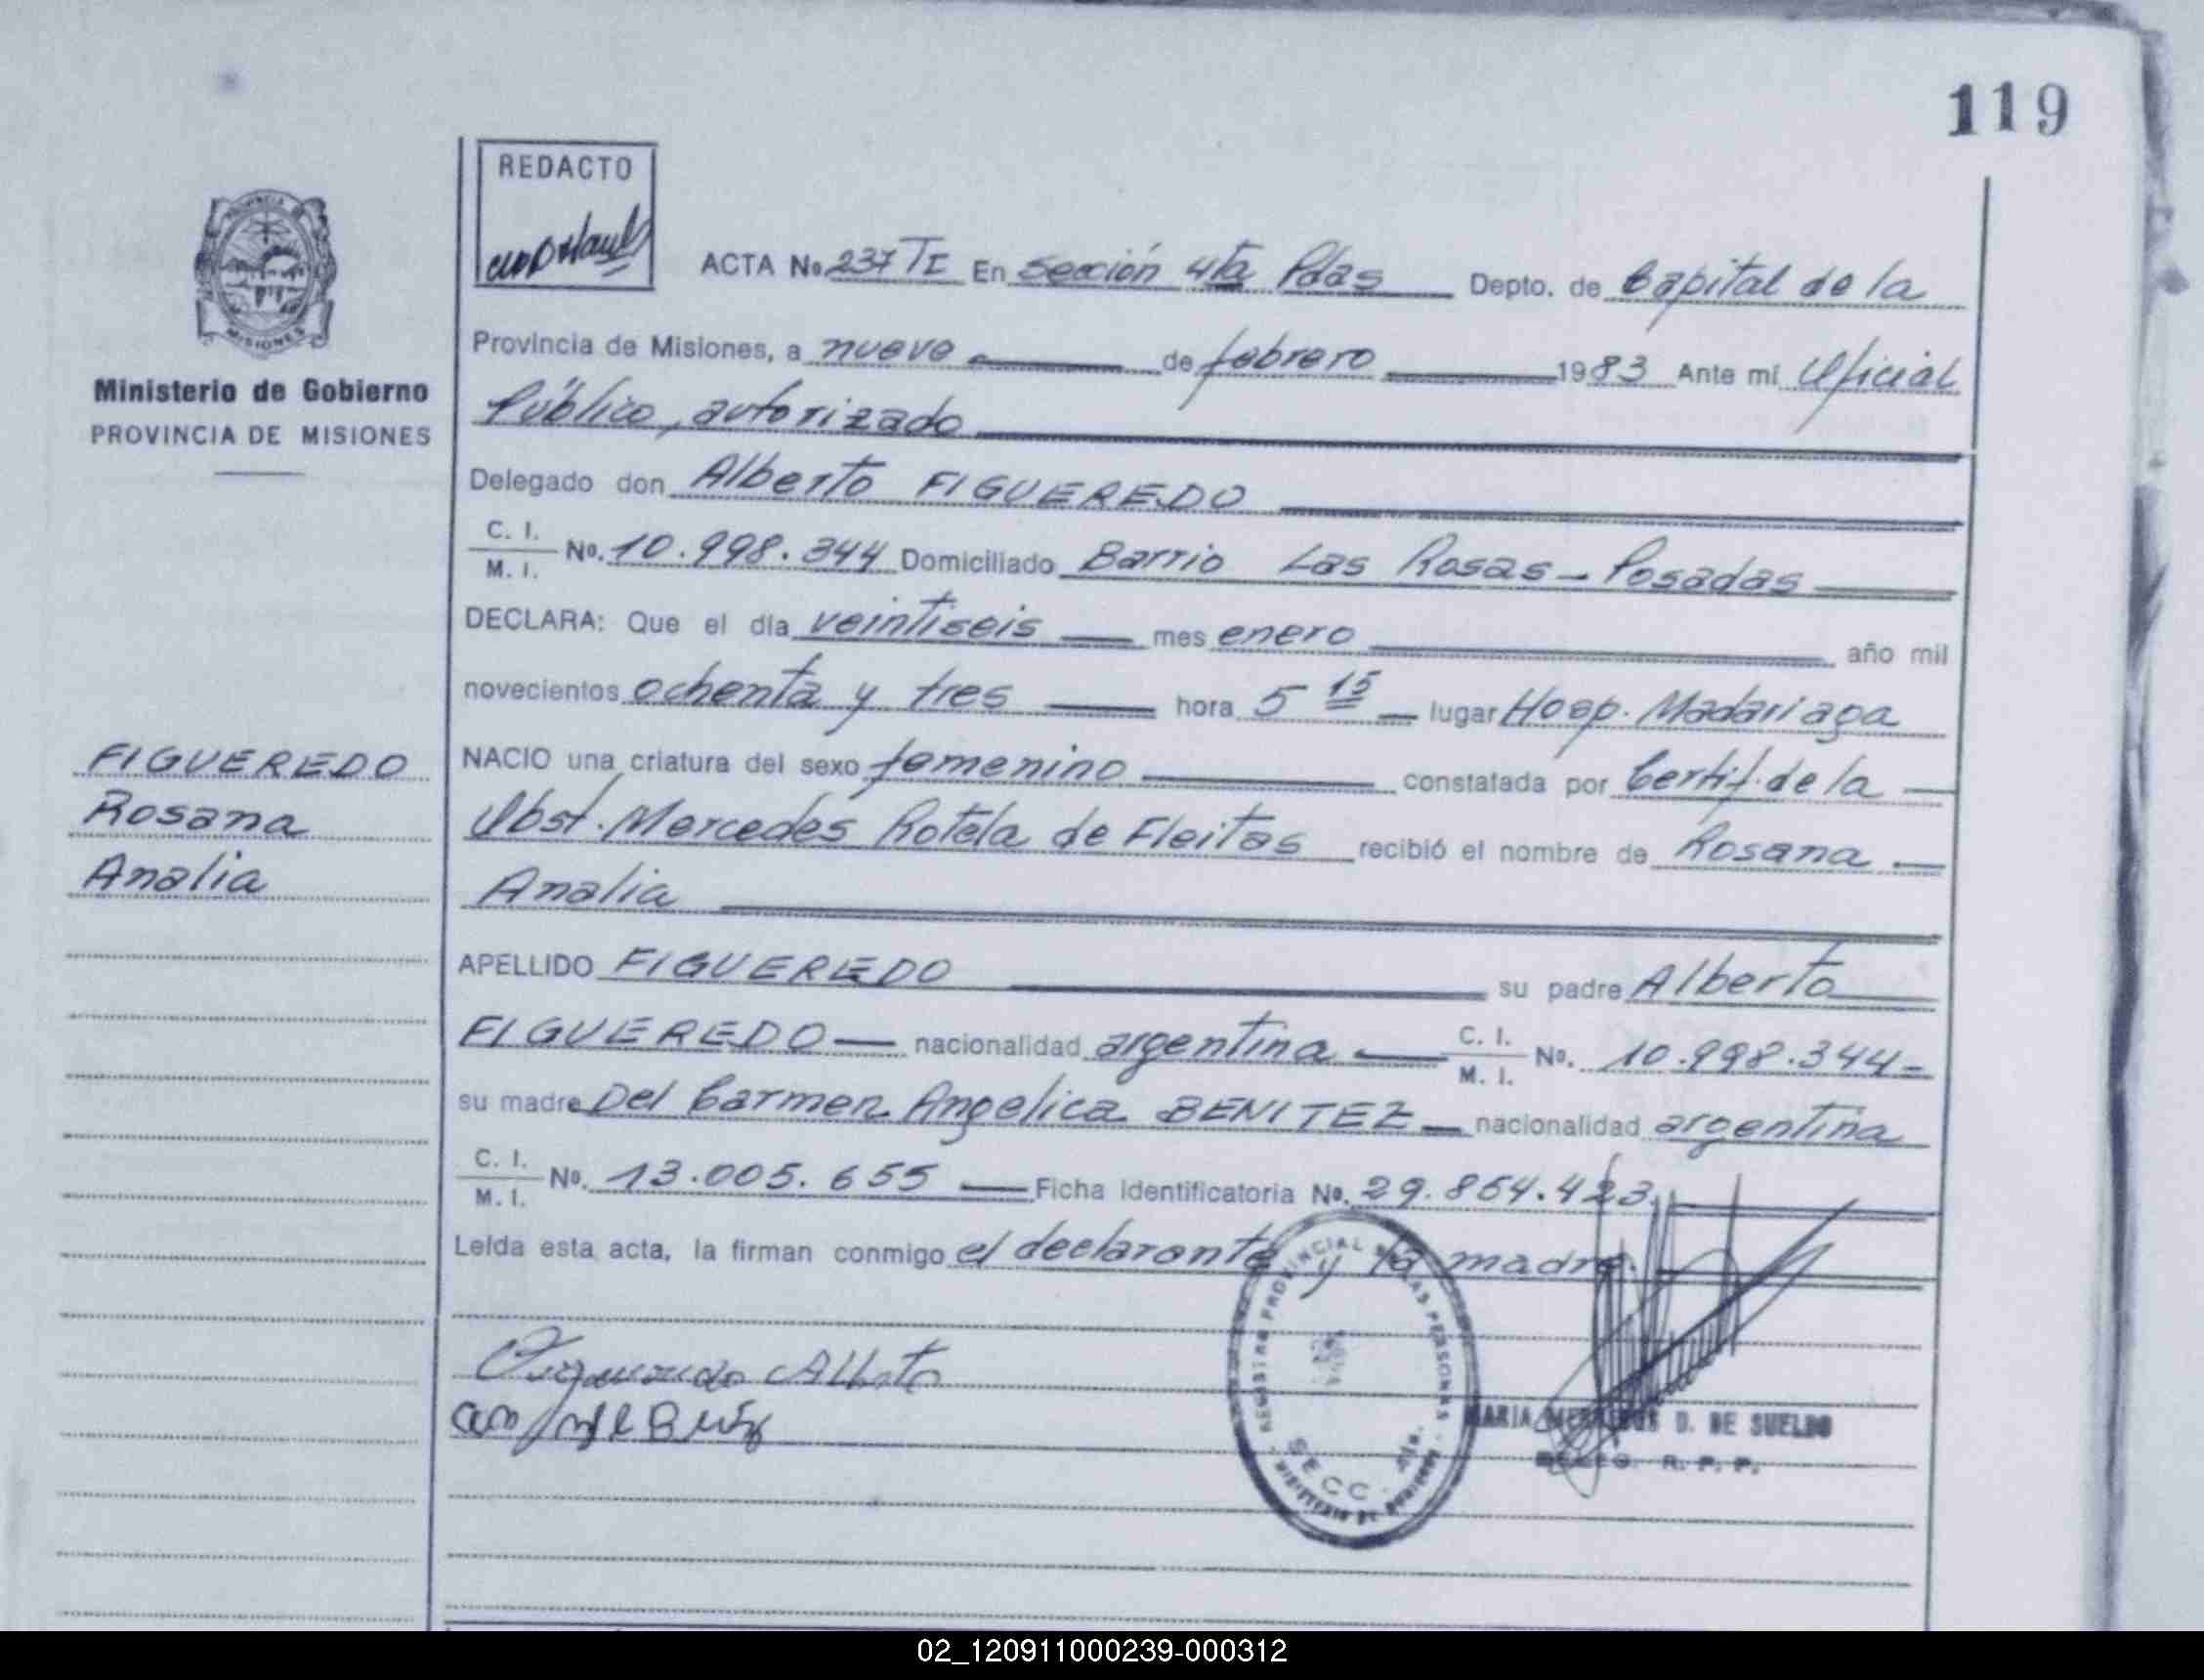 119
REDACTO
ACTA No 237 TI En Sección 4ta Pdas Depto. de Capital de la
Provincia de Misiones, a nueve de febrero 1983 Ante mí Oficial
Público, autorizado
Ministerio de Gobierno
PROVINCIA DE MISIONES
Delegado don Alberto FIGUEREDO
C. I.
M. I. Nº. 10.998.344 Domiciliado Barrio Las Rosas - Posadas
DECLARA: Que el día veintiseis mes enero año mil
novecientos ochenta y tres hora 5 15 lugar Hosp. Madariaga
NACIO una criatura del sexo femenino constatada por Certif. de la
Obst. Mercedes Rotela de Fleitas recibió el nombre de Rosana
Analia
FIGUEREDO
Rosana
Analia
APELLIDO FIGUEREDO su padre Alberto
FIGUEREDO nacionalidad argentina C. I.
M. I. Nº. 10.998.344-
su madre Del Carmen Angelica BENITEZ nacionalidad argentina
C. I.
M. I. Nº. 13.005.655 Ficha Identificatoria No. 29.864.423.
Leída esta acta, la firman conmigo el declarante y la madre.
Figueredo Alberto
REGISTRO PROVINCIAL DE LAS PERSONAS
SECC. 4ta.
MINISTERIO DE GOBIERNO
MARIA D. DE SUELDO
R. P. P.
02_120911000239-000312